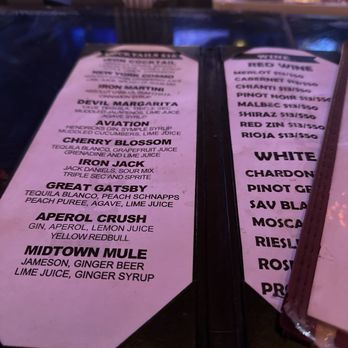 COCKTAILS $15
IRON COCKTAIL
NEW YORK COSMO
IRON MARTINI
DEVIL MARGARITA
CASA TEQUILA, TRIPLE SEC
MUDDLED JALAPENO, LIME JUICE
AGAVE SYRUP
AVIATION
HENDRICKS GIN, SYMPLE SYRUP
MUDDLED CUCUMBERS, LIME JUICE
CHERRY BLOSSOM
TEQUILA BLANCO, GRAPEFRUIT JUICE
GRENADINE AND LIME JUICE
IRON JACK
JACK DANIELS, SOUR MIX
TRIPLE SEC AND SPRITE
GREAT GATSBY
TEQUILA BLANCO, PEACH SCHNAPPS
PEACH PUREE, AGAVE, LIME JUICE
APEROL CRUSH
GIN, APEROL, LEMON JUICE
YELLOW REDBULL
MIDTOWN MULE
JAMESON, GINGER BEER
LIME JUICE, GINGER SYRUP
WINE
RED WINE
MERLOT $13/$50
CABERNET $13/$50
CHIANTI $13/$50
PINOT NOIR $13/$50
MALBEC $13/$50
SHIRAZ $13/$50
RED ZIN $13/$50
RIOJA $13/$50
WHITE
CHARDON
PINOT GR
SAV BLA
MOSCA
RIESL
ROS
PRO